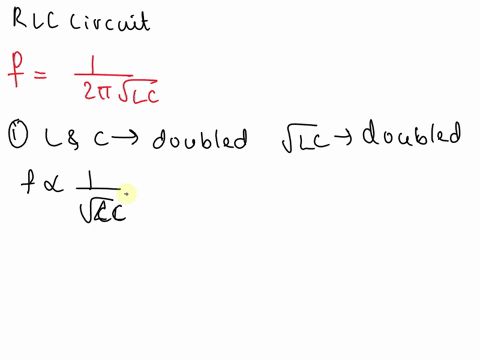 RLC Circuit
f = 1 / 2π√LC
① L & C → doubled √LC → doubled
f ∝ 1 / √LC